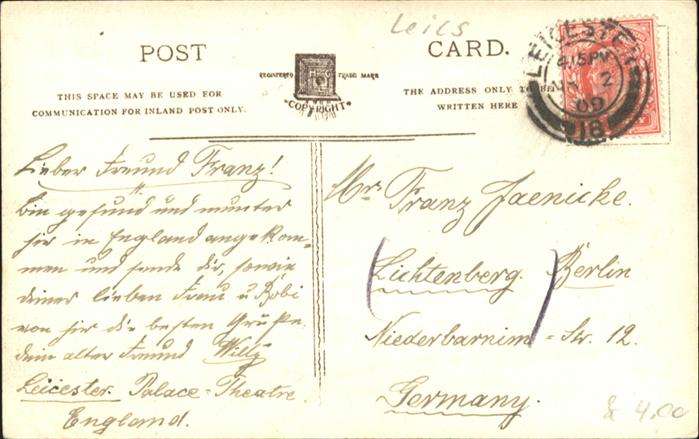 Leics
POST CARD.
REGISTERED TRADE MARK
COPYRIGHT
THIS SPACE MAY BE USED FOR
COMMUNICATION FOR INLAND POST ONLY.
THE ADDRESS ONLY TO BE
WRITTEN HERE
LEICESTER
4.15 PM
2
09
18
Lieber Freund Franz!
bin gesund und munter
hir in England angekom-
men und sende dir, sowie
deiner lieben Frau u. Bobi
von hir die besten Grüße.
dein alter Freund Willy
Leicester. Palace-Theatre
England.
Mr Franz Jaenicke.
(Lichtenberg.) Berlin
Niederbarnim-Str. 12.
Germany.
4.00